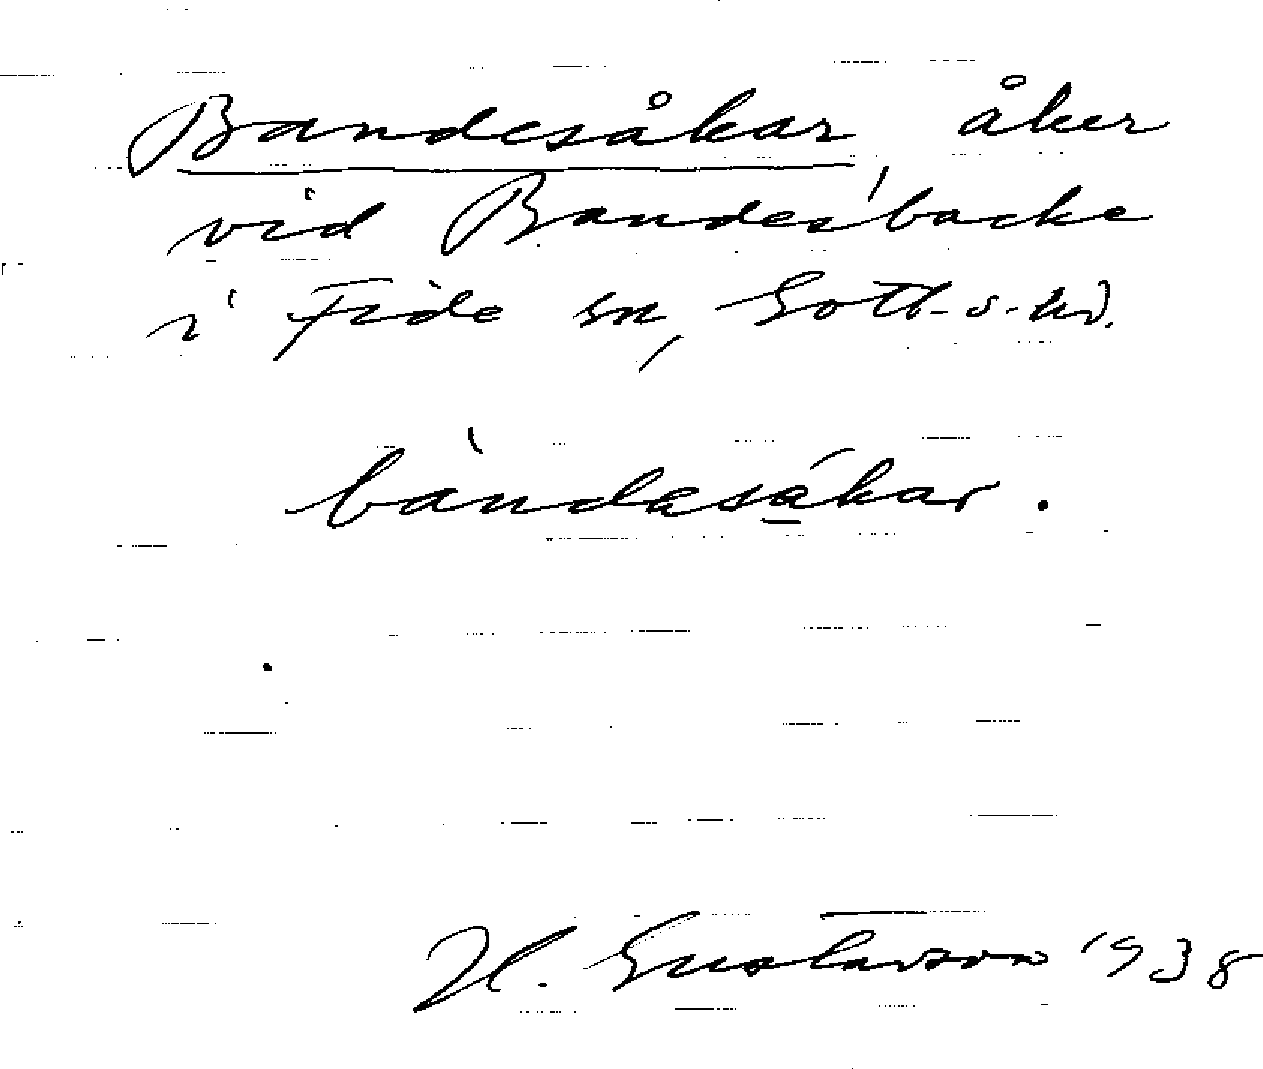 Bandesåkar, åker
vid Bandesbacke
i Fide sn, Gotl. s. hd.
bàndasákar.
H. Gustavson 1938